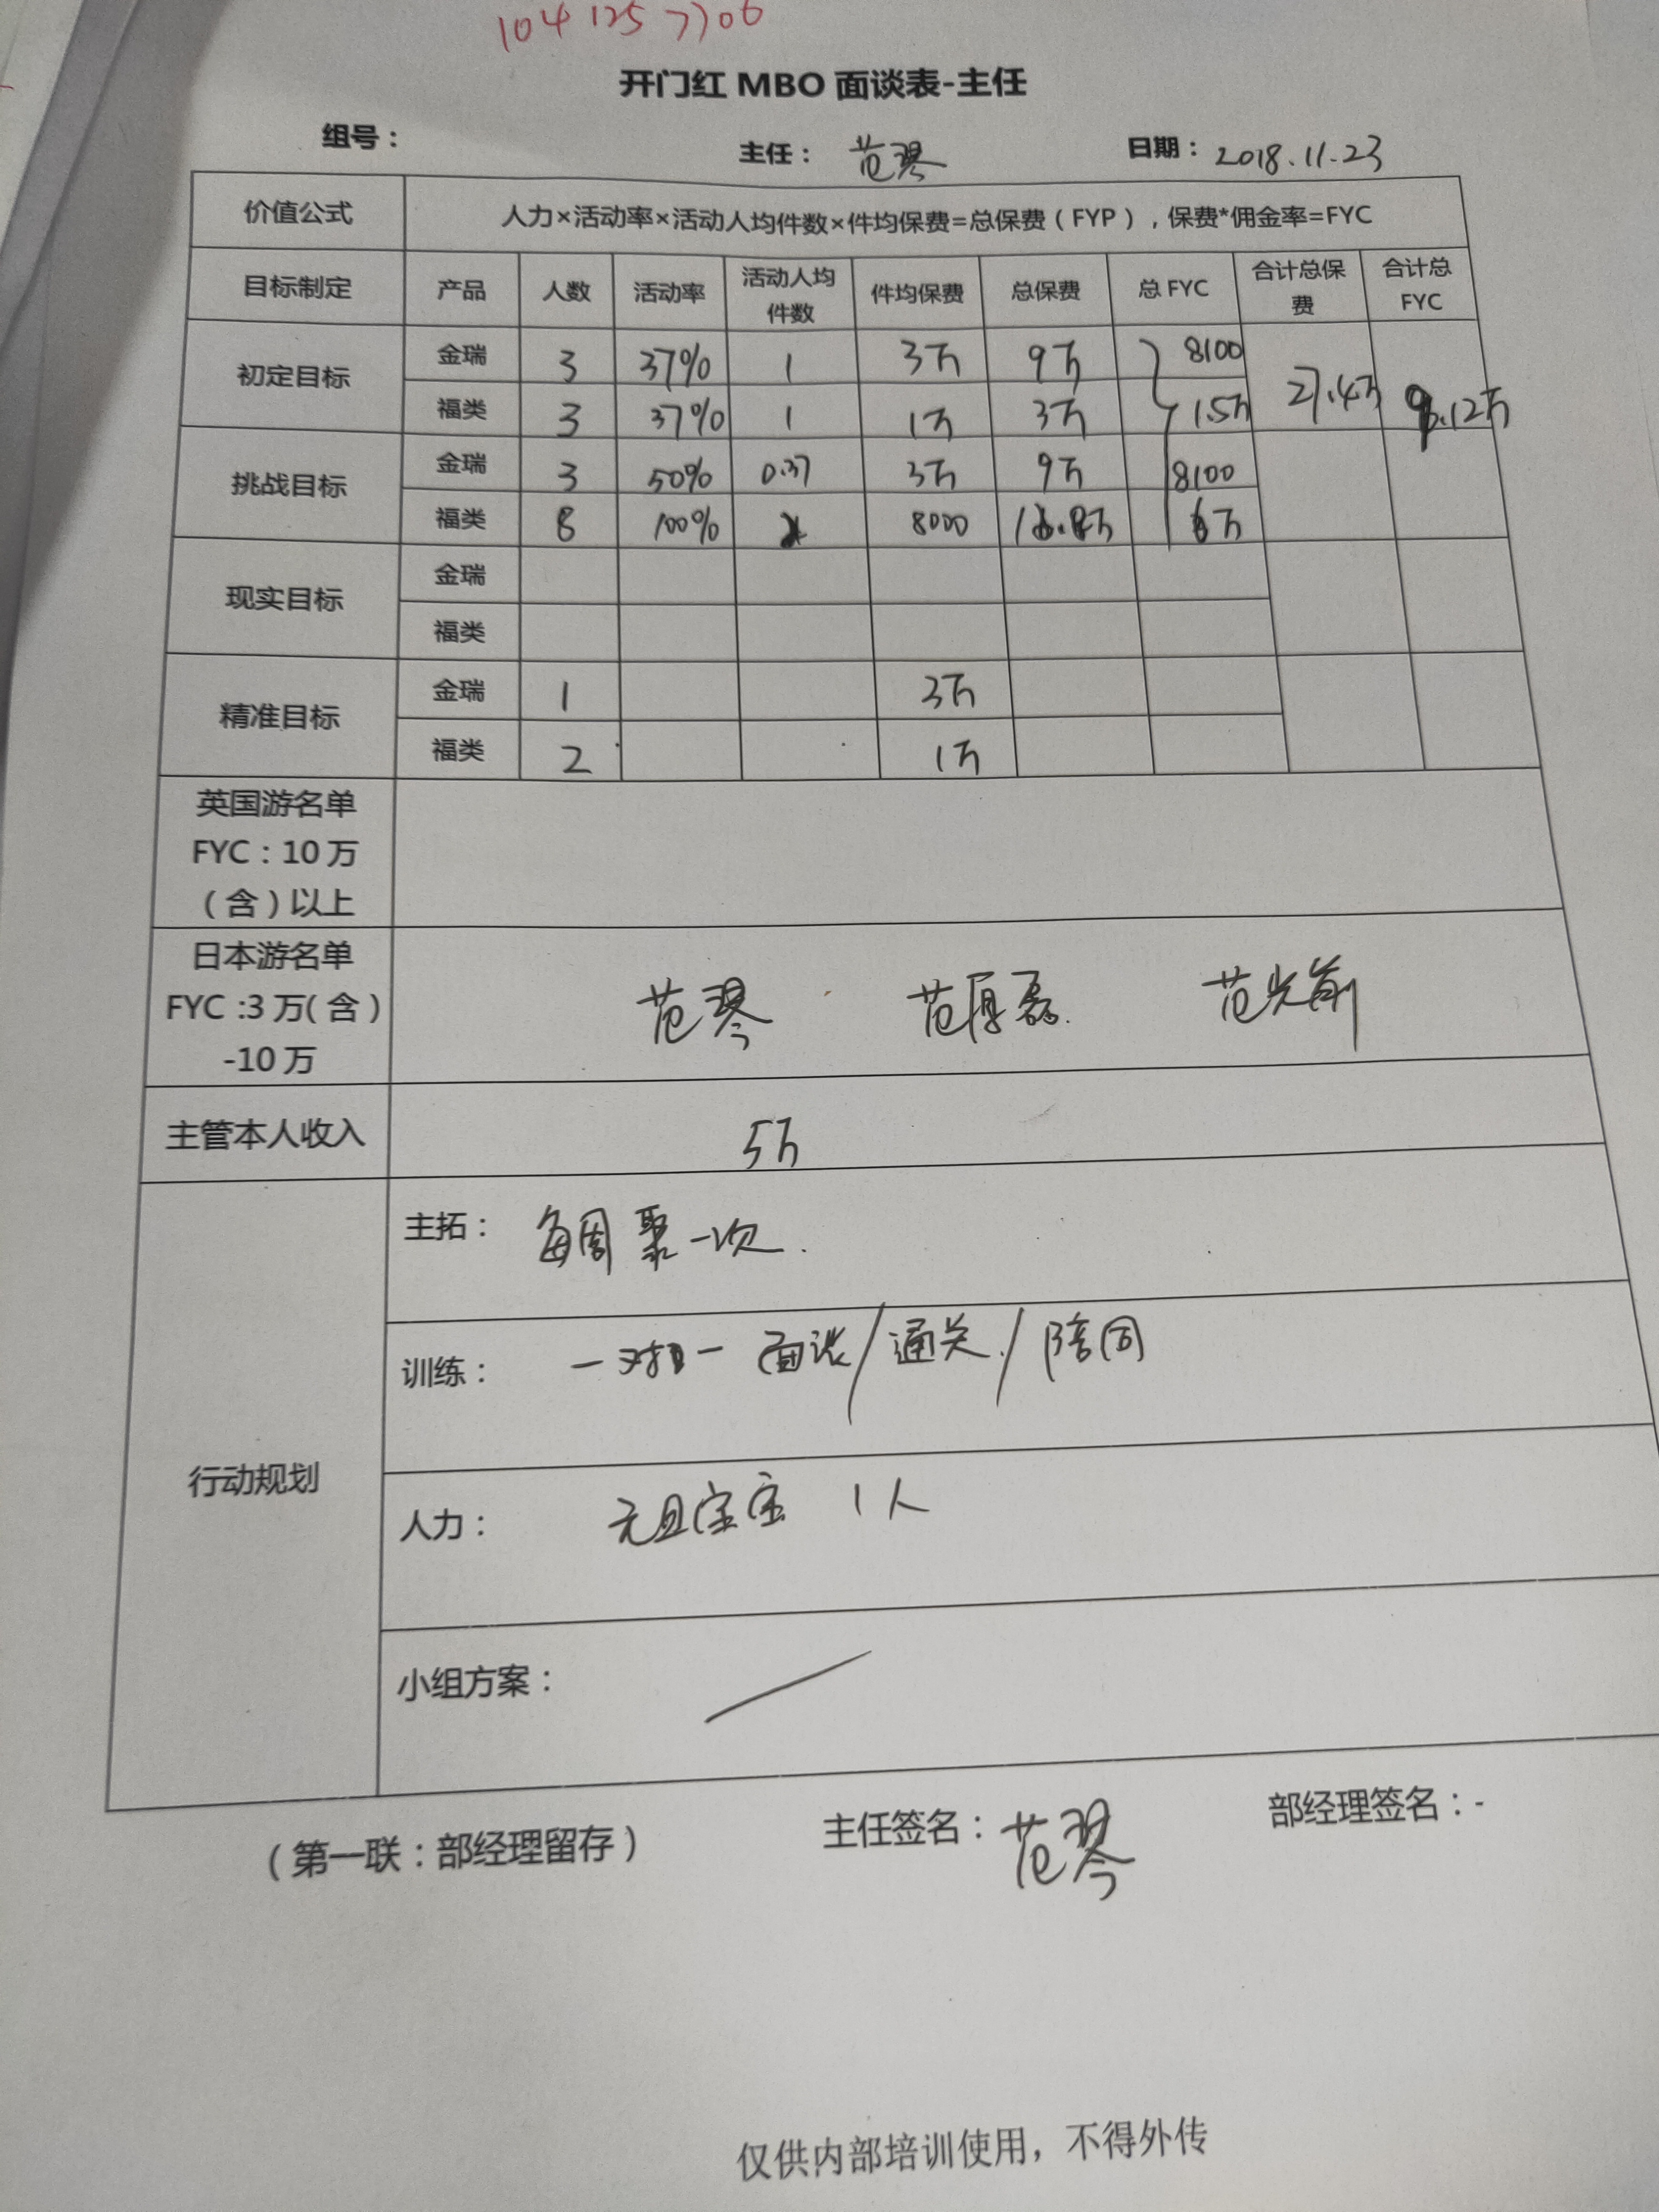 104 125 7706
开门红 MBO 面谈表-主任
组号： 主任： 范琴 日期： 2018.11.23
价值公式 人力×活动率×活动人均件数×件均保费=总保费（FYP），保费*佣金率=FYC
目标制定 产品 人数 活动率 活动人均件数 件均保费 总保费 总 FYC 合计总保费 合计总 FYC
初定目标 金瑞 3 37% 1 3万 9万 8100 27.4万 9.12万
福类 3 37% 1 1万 3万 1.5万
挑战目标 金瑞 3 50% 0.37 3万 9万 8100
福类 8 100% 8000
现实目标 金瑞
福类
精准目标 金瑞 1 3万
福类 2 1万
英国游名单
FYC：10 万
（含）以上
日本游名单
FYC :3 万（含）
-10 万
范琴 范厚磊. 范光前
主管本人收入 5万
行动规划
主拓： 每周聚一次.
训练： 一对一 面谈/通关/陪同
人力： 元旦宝宝 1人
小组方案：
（第一联：部经理留存） 主任签名：范琴 部经理签名：-
仅供内部培训使用，不得外传